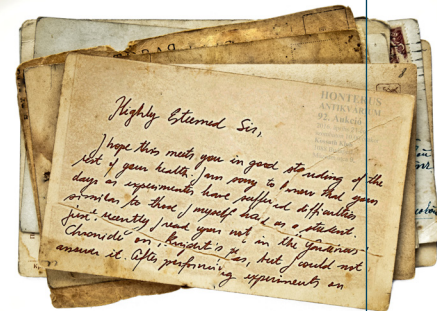 HONTERUS
ANTIKVÁRIUM
92. Aukció
Highly Esteemed Sir,
I hope this meets you in good standing of the
rest of your health. I am sorry to know that your
days as experiments have suffered difficulties
similar to those I myself had as a student.
just recently I read your not in the
Chronicle on but I could not
answer it. After performing experiments on